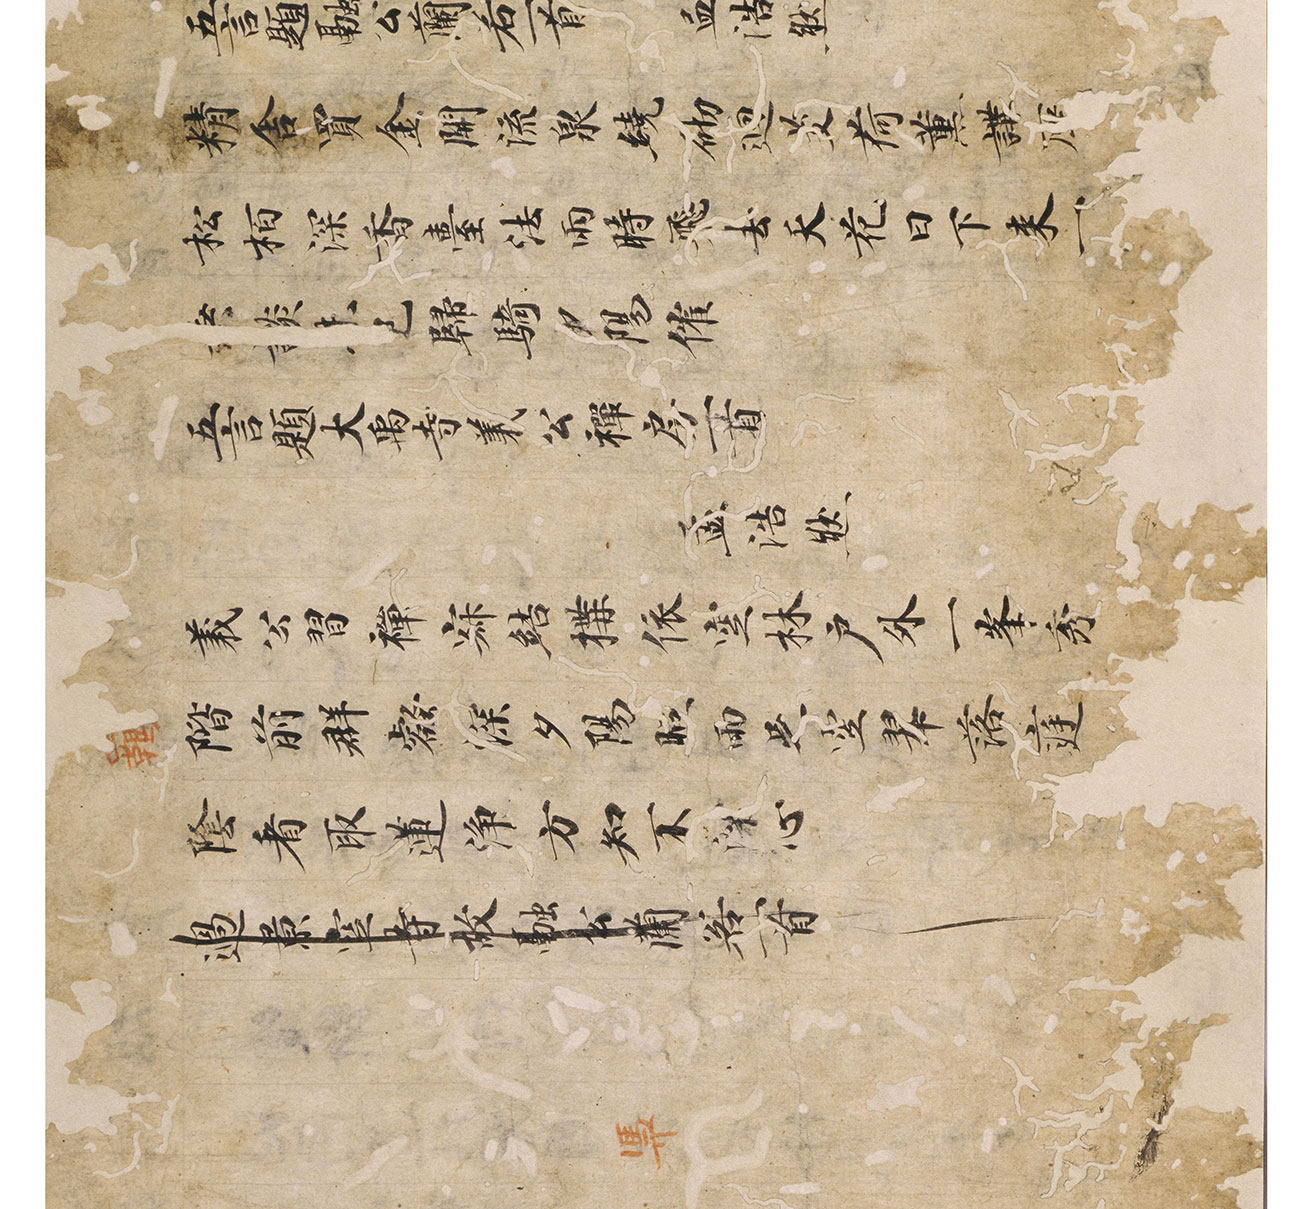 五言題融公蘭若一首 孟浩然
精舍買金開流泉繞砌迴芰荷薰講席
松栢深香臺法雨時飛去天花日下來
已歸騎夕陽催
五言題大禹寺義公禪房一首
孟浩然
義公習禪寂結搆依空林戶外一峯秀
階前群壑深夕陽照雨足空翠落庭
陰看取蓮淨方知不染心
過景空寺故融公蘭若一首